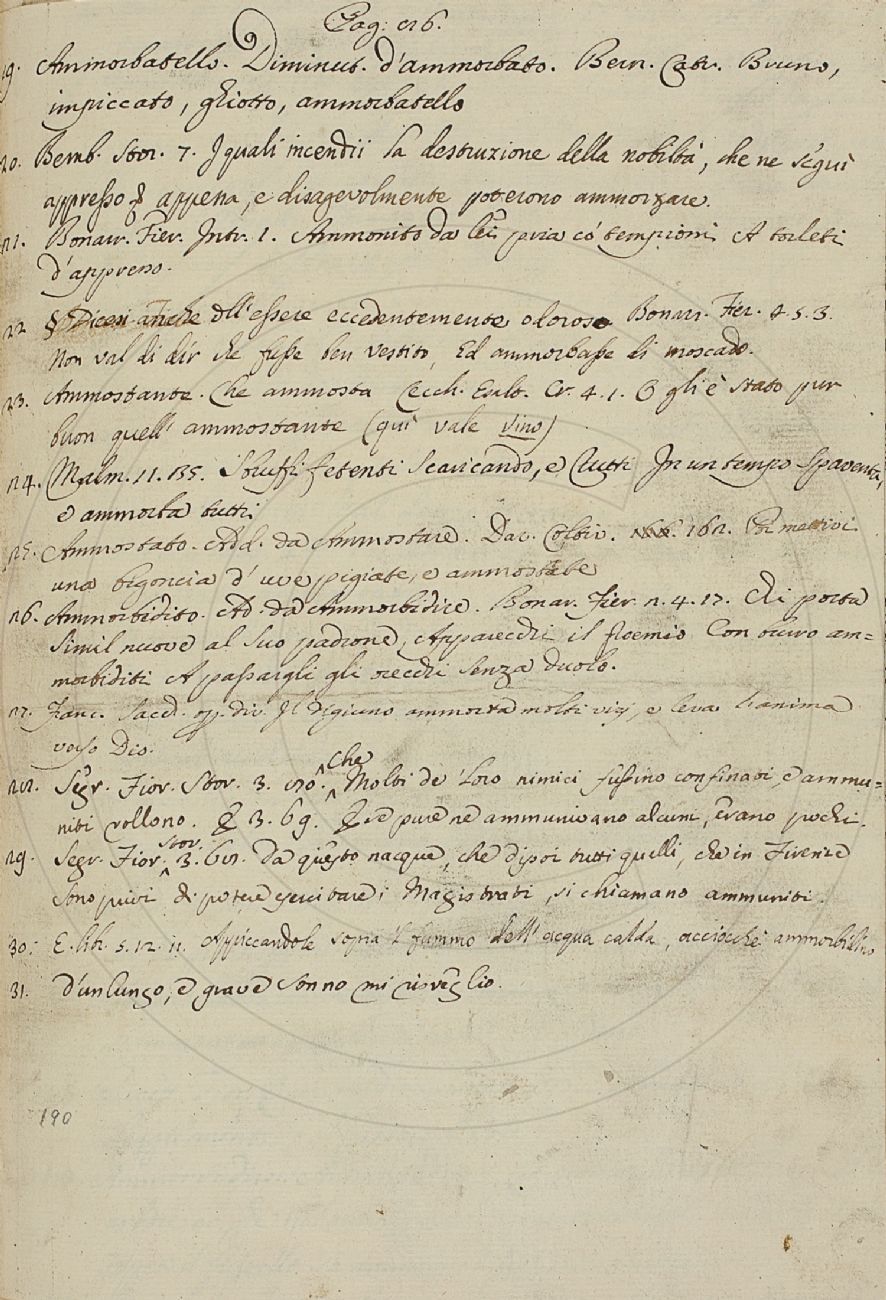 Pag: 86.
19. Ammorbatello. Diminut. d'ammorbato. Bern. Catr. Bruno,
impiccato, ghiotto, ammorbatello
20. Bemb. Stor. 7. I quali incendii la destruzione della nobiltà, che ne seguì
appresso appena, e disagevolmente poterono ammorzare.
21. Bonarr. Fier. Intr. 1. Ammonito da lei pria có tempioni A torleti
d'appreno.
22 § Dicesi anche dll'essere eccedentemente oloroso Bonarr. Fier. 4. 5. 3.
Non val di dir che fusse ben vestito, Ed ammorbasse di moscado.
23. Ammostante. Che ammosta Cecch. Esalt. Cr. 4. 1. O gli è stato pur
buon quell' ammostante (qui vale vino)
24. Malm. 11. 135. Sbuffi fetenti Scaricando, e rutti In un tempo spaventa,
e ammorba tutti
25. Ammostato. Add. da Ammostare. Dav. Coltiv. 162. Poi mettivi
una bigoncia d' uve pigiate, e ammostate
26. Ammorbidito. Ad. da Ammorbidire. Bonar. Fier. 2. 4. 17. Chi porta
Simil nuove al suo padrone, Apparecchi il premio Con ammorbiditi A passargli gli orecchi senza duolo.
27. Franc. Sacch. op. div. Il digiuno ammorta molti vizj, e leva l'anima
verso Dio.
28. Segr. Fior. Stor. 3. 80. Che Molti de' loro nimici fussino confinati, e ammu=
niti vollono. E 3. 69. E se pure ne ammunivano alcuni, erano pochi.
29. Segr. Fior. Stor. 3. 68. Da questo nacque, che dipoi tutti quelli, che in Firenze
sono privi di potere esercitare i Magistrati, si chiamano ammuniti.
30. E lib. 5. 12. 11. Appiccandole sopra 'l fummo dell' acqua calda, acciocchè ammorbidino
31. d'un lungo, e grave sonno mi risveglio.
190